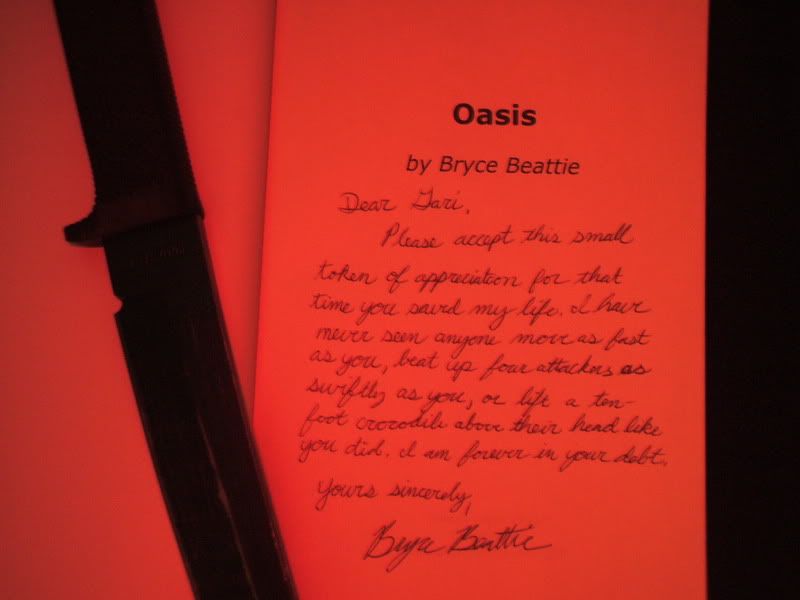 Oasis
by Bryce Beattie
Dear Gari,
Please accept this small
token of appreciation for that
time you saved my life. I have
never seen anyone move as fast
as you, beat up four attackers as
swiftly as you, or lift a ten-
foot crocodile above their head like
you did. I am forever in your debt.
Yours sincerely,
Bryce Beattie